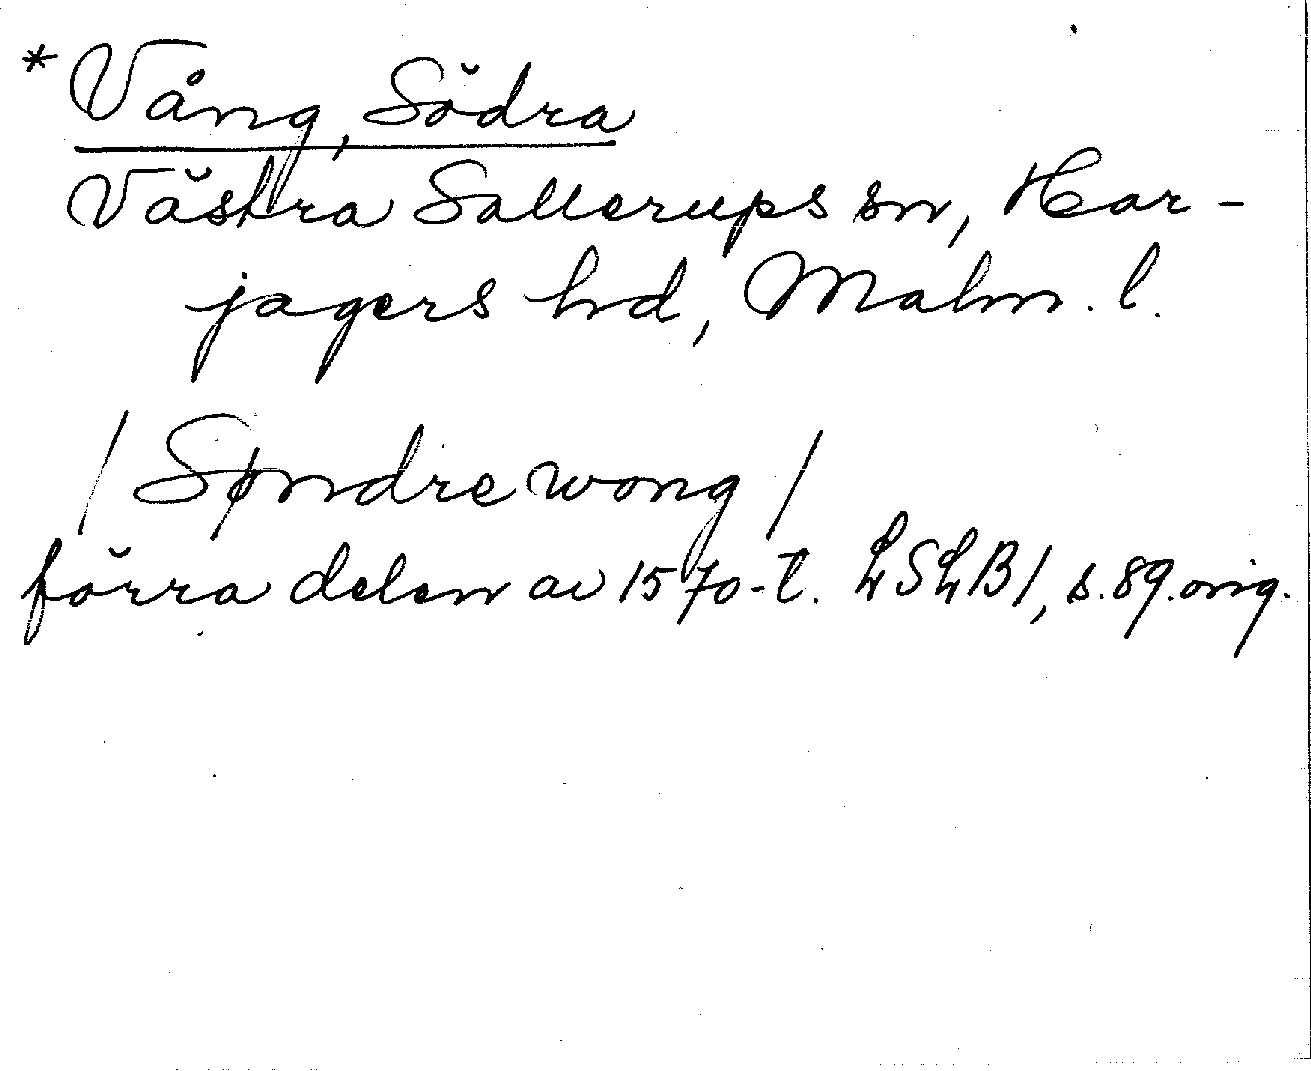 * Vång, Södra
Västra Sallerups sn, Har-
jagers hd, Malm. l.
/ Søndre wong /
förra delen av 1570-t. LSLB 1, s. 89. orig.